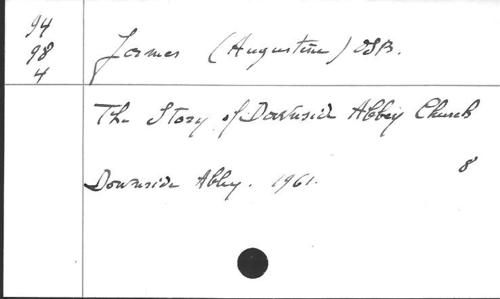 94
98
4
James (Augustine) OSB.
The Story of Downside Abbey Church
8
Downside Abbey. 1961.